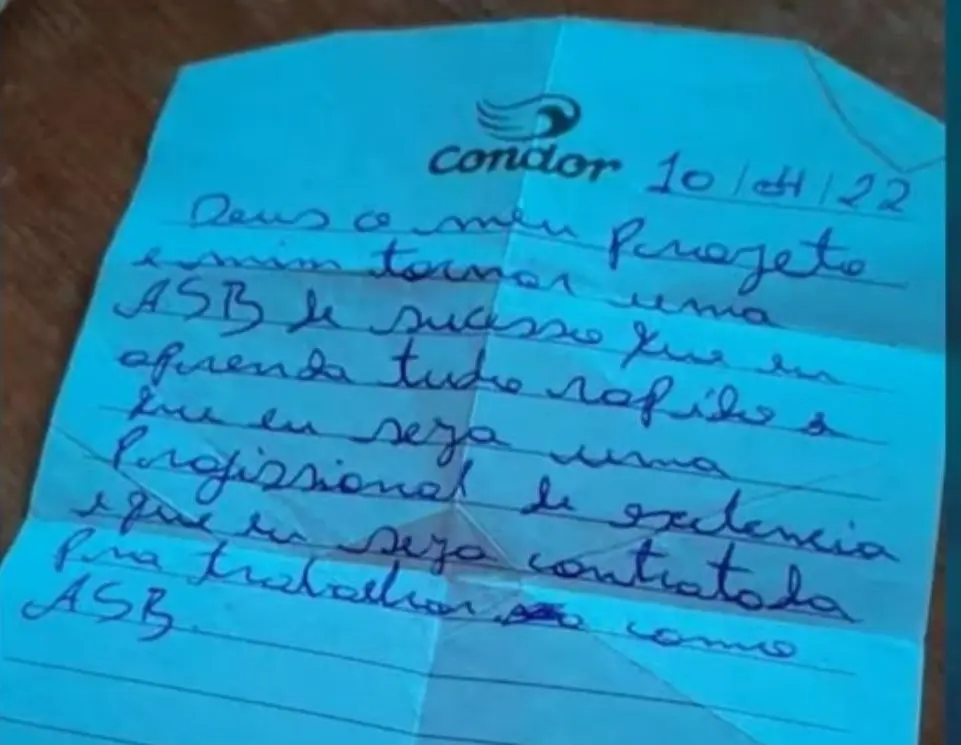 condor
10/04/22
Deus o meu Projeto
e mim tornar uma
ASB de sucesso que eu
aprenda tudo rapido e
que eu seja uma
Profissional de exelencia
e que eu seja contratada
Pra trabalhar como
ASB.